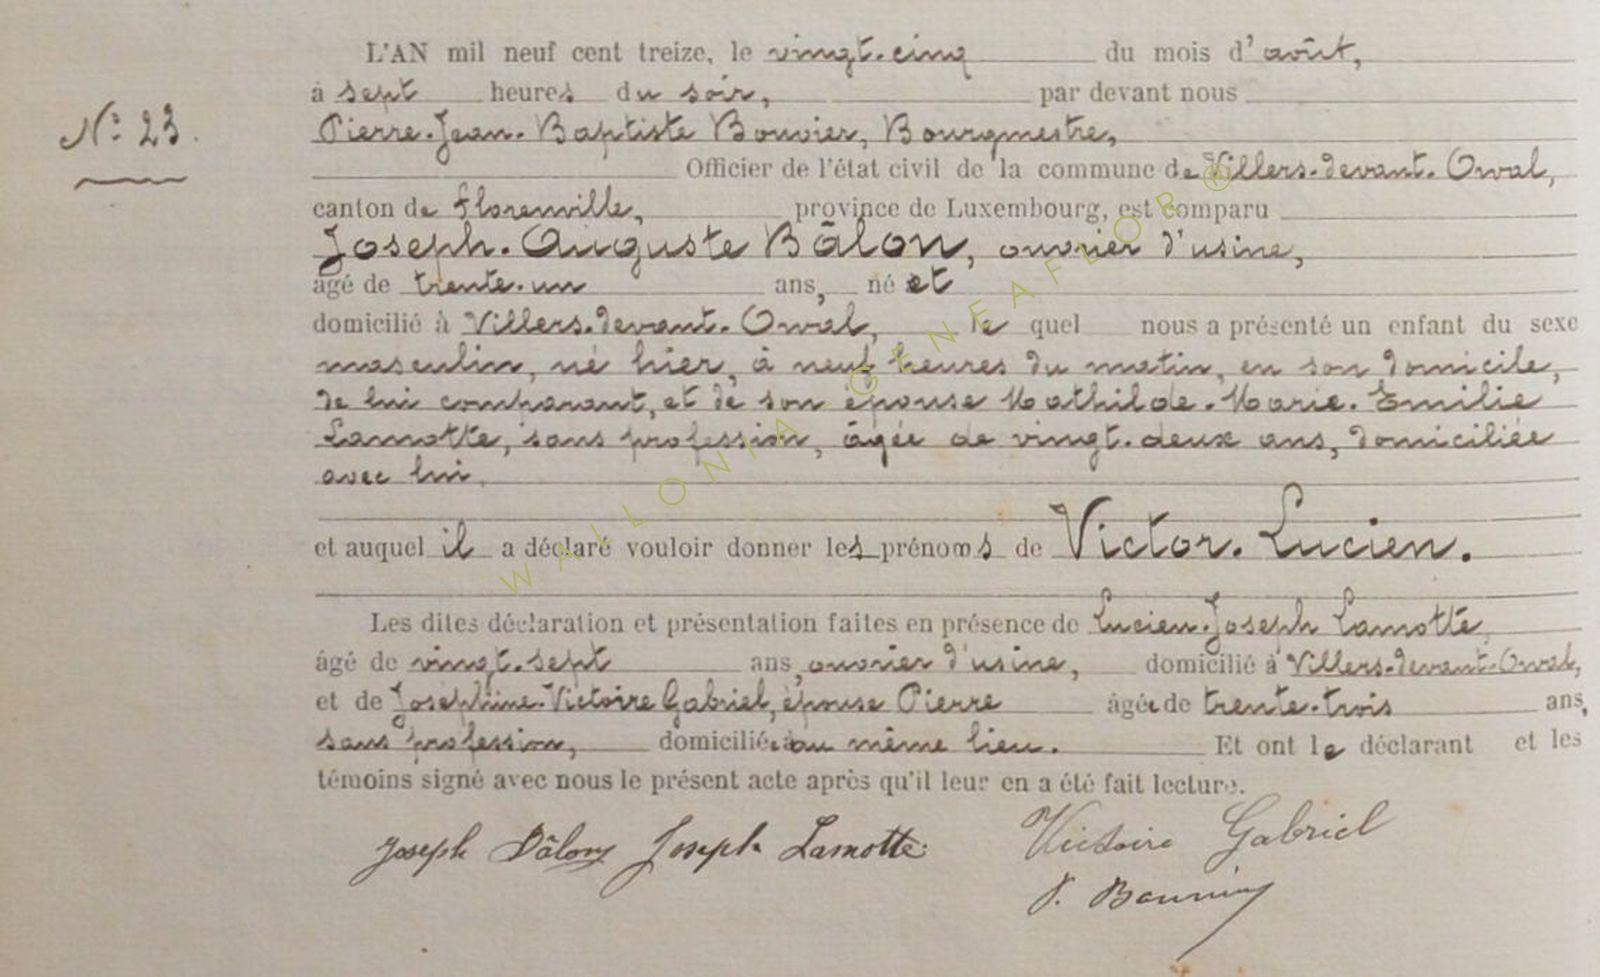 L'AN mil neuf cent treize, le vingt-cinq du mois d'août,
à sept heures du soir, par devant nous
N° 23.
Pierre-Jean-Baptiste Bouvier, Bourgmestre,
Officier de l'état civil de la commune de Villers-devant-Orval,
canton de Florenville, province de Luxembourg, est comparu
Joseph-Auguste Bâlon, ouvrier d'usine,
âgé de trente-un ans, né et
domicilié à Villers-devant-Orval, le quel nous a présenté un enfant du sexe
masculin, né hier, à neuf heures du matin, en son domicile,
de lui comparant, et de son épouse Mathilde-Marie-Emilie
Lamotte, sans profession, âgée de vingt-deux ans, domiciliée
avec lui,
et auquel il a déclaré vouloir donner les prénoms de Victor-Lucien.
Les dites déclaration et présentation faites en présence de Lucien-Joseph Lamotte,
âgé de vingt-sept ans, ouvrier d'usine, domicilié à Villers-devant-Orval,
et de Joséphine-Victoire Gabriel, épouse Pierre âgée de trente-trois ans,
sans profession, domiciliée au même lieu. Et ont le déclarant et les
témoins signé avec nous le présent acte après qu'il leur en a été fait lecture.
Joseph Bâlon Joseph Lamotte Victoire Gabriel
P. Bouvier
WALLONIA GENEAFLOR ®